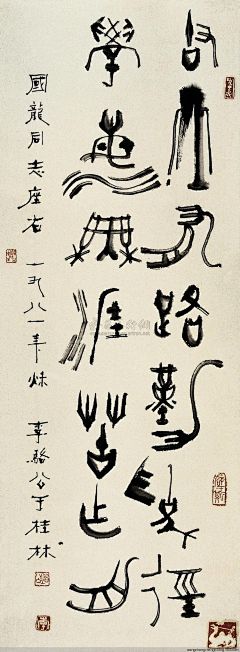 書山有路勤為徑
學海無涯苦作舟
國龍同志座右 一九八一年秋 李駱公于桂林